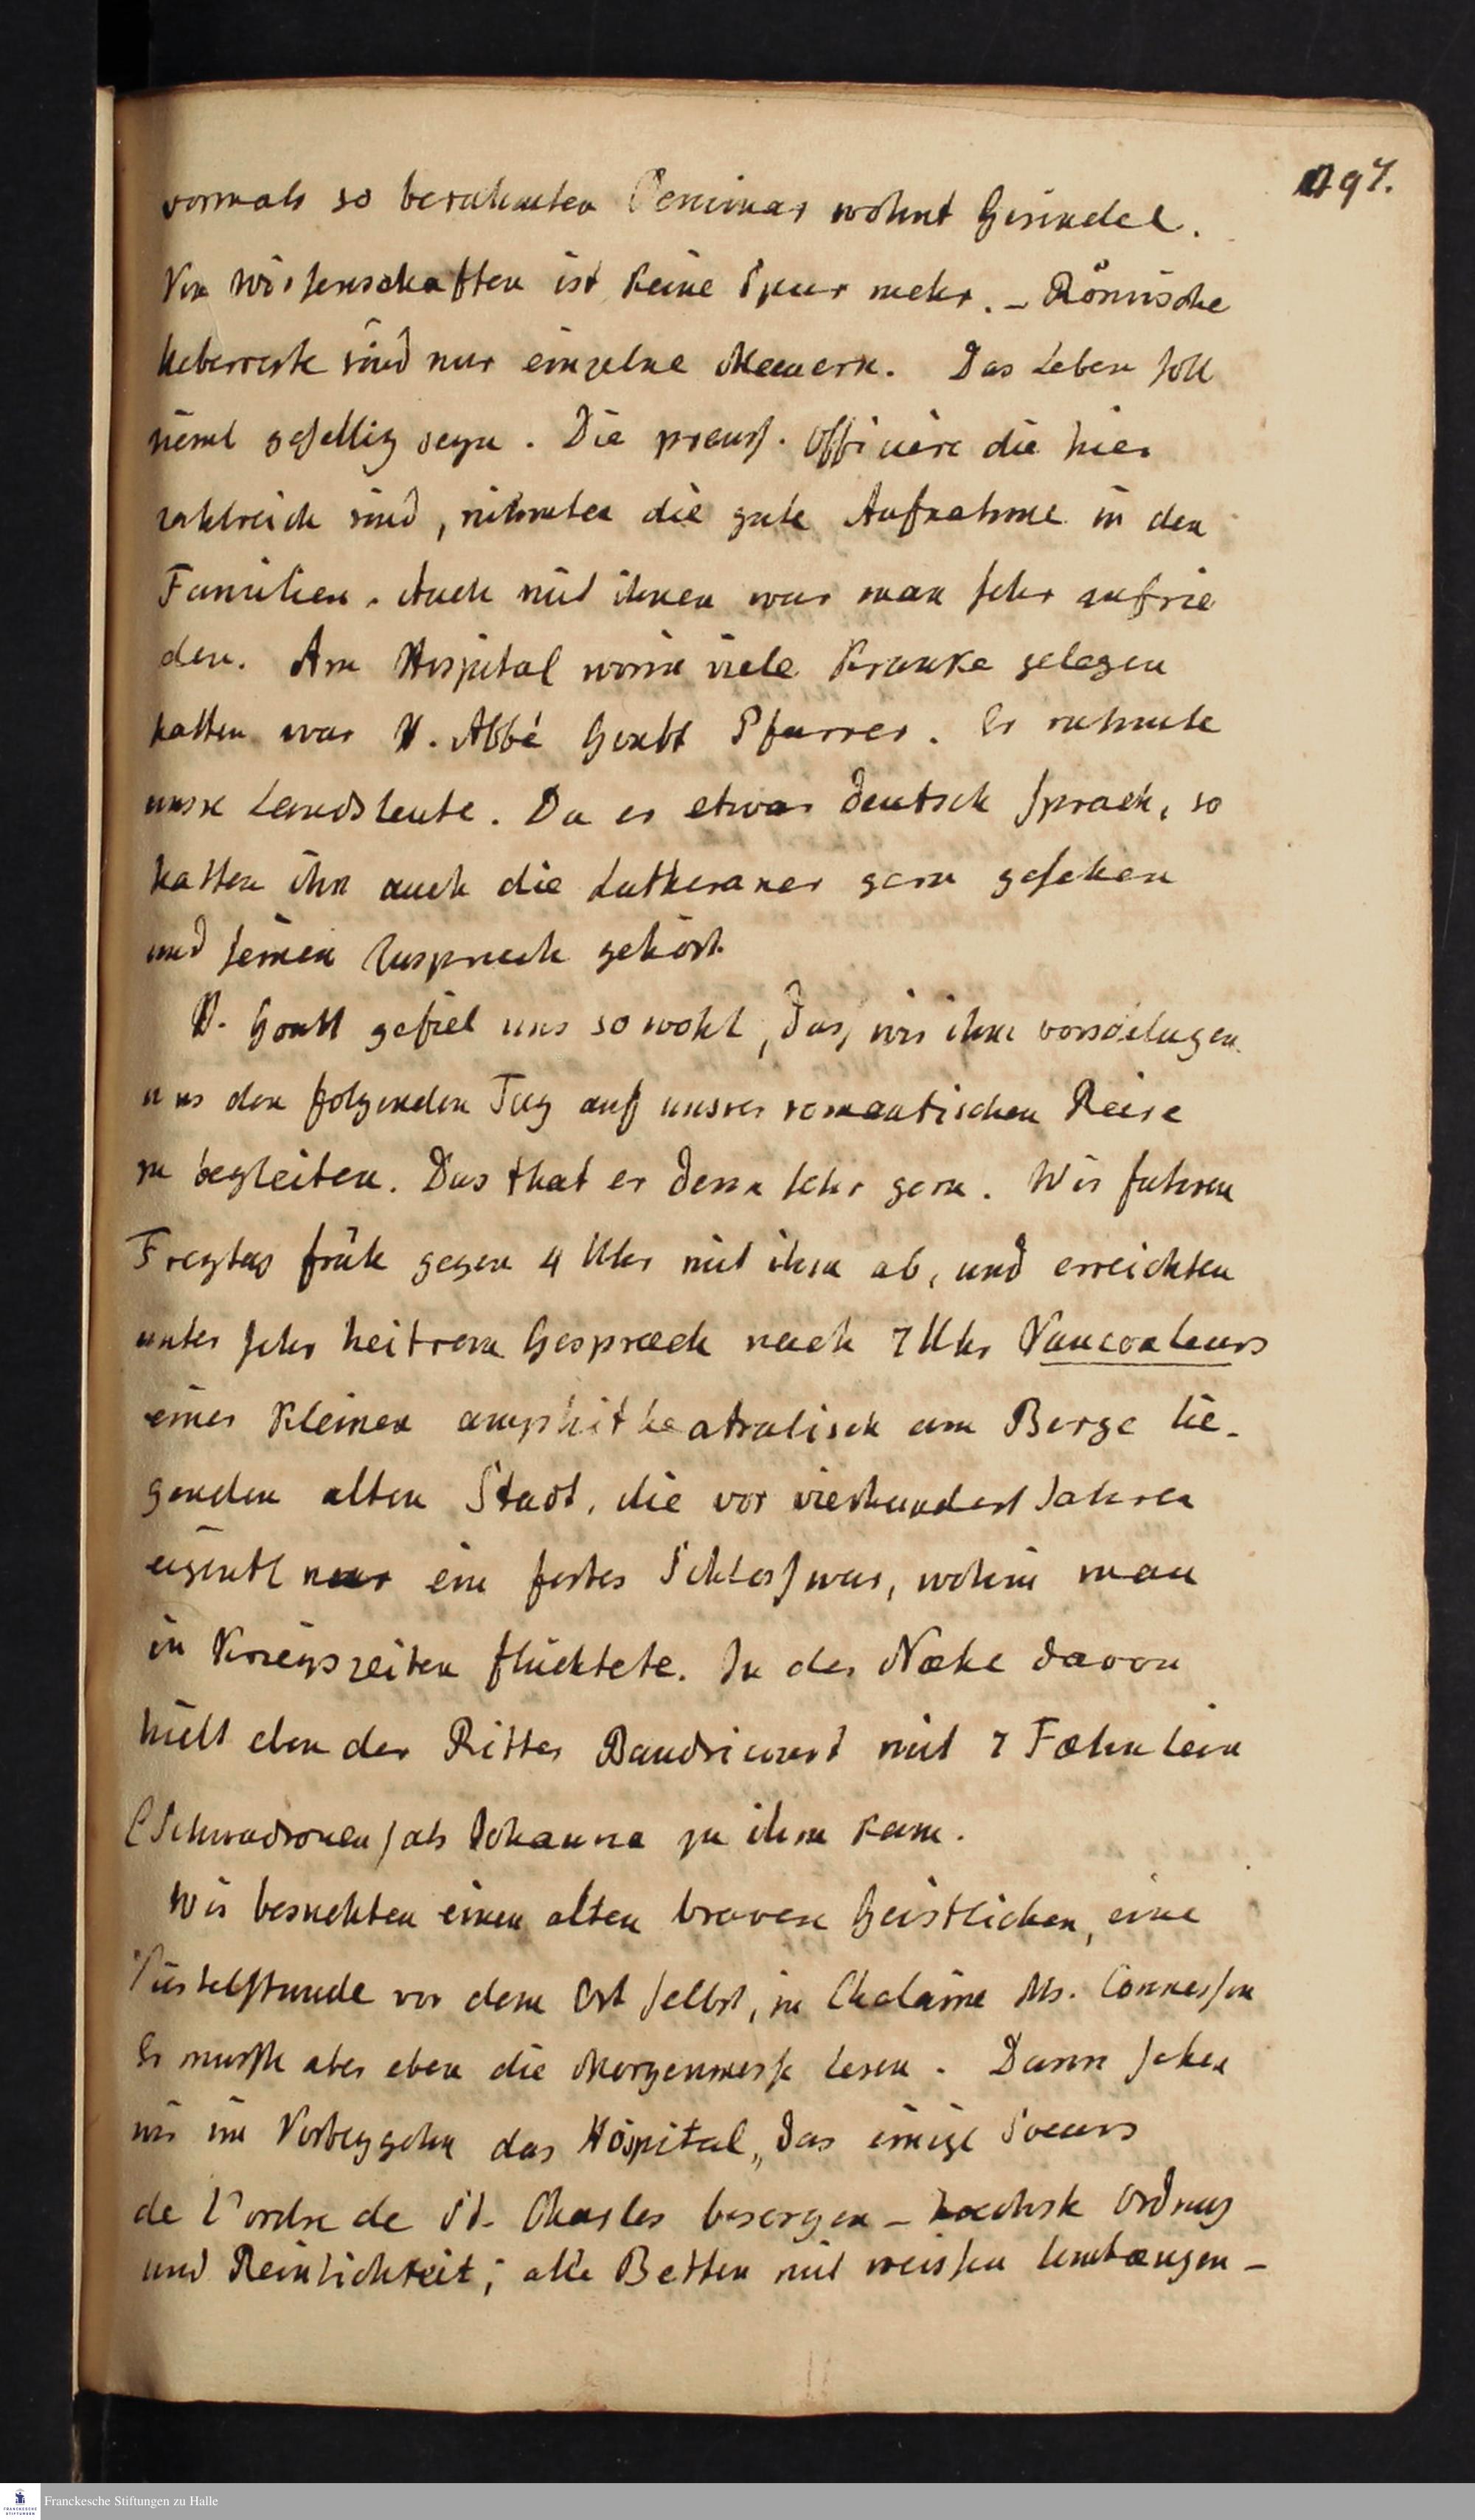 197.
vormals so berühmten Seminar wohnt Gesindel.
Von Wissenschaften ist keine Spur mehr. – Römische
Ueberreste sind nur einzelne Mauern. Das Leben soll
ziemL gesellig seyn. Die preuss. Officiere die hier
zahlreich sind, rühmten die gute Aufnahme in den
Familien. Auch mit ihnen war man sehr zufrie
den. Am Hospital worin viele Kranke gelegen
hatten war H. Abbé Pfarrer. Er ruhmte
unsre Landsleute. Da er etwas deutsch sprach, so
hatten ihn auch die Lutheraner gern gesehen
und seinen Zuspruch gehört.
H. gefiel uns so wohl, dass wir ihm vorschlugen
uns den folgenden Tag auf unsrer romantischen Reise
zu begleiten. Das that er denn sehr gern. Wir fuhren
Freytag früh gegen 4 Uhr mit ihm ab, und erreichten
unter sehr heitrem Gespraech nach 7 Uhr Vaucouleurs
einer kleinen amphitheatralisch am Berge lie-
genden alten Stadt, die vor vierhundert Jahren
eigentl nur ein festes Schloss war, wohin man
in Kriegszeiten flüchtete. In der Naehe davon
hielt eben der Ritter Baudricourt mit 7 Faehnlein
(Schwadronen) als Johanna zu ihm kam.
Wir besuchten einen alten braven Geistlichen, eine
Viertelstunde vor dem Ort selbst, in Chalaine Mr.
Er musste aber eben die Morgenmesse lesen. Dann sahen
wir im Vorbeygehn das Hospital, das einige Soeurs
de l'ordre de St. Charles besorgen – hoechste Ordnug
und Reinlichkeit; alle Betten mit weissen Umhaengen –
Franckesche Stiftungen zu Halle